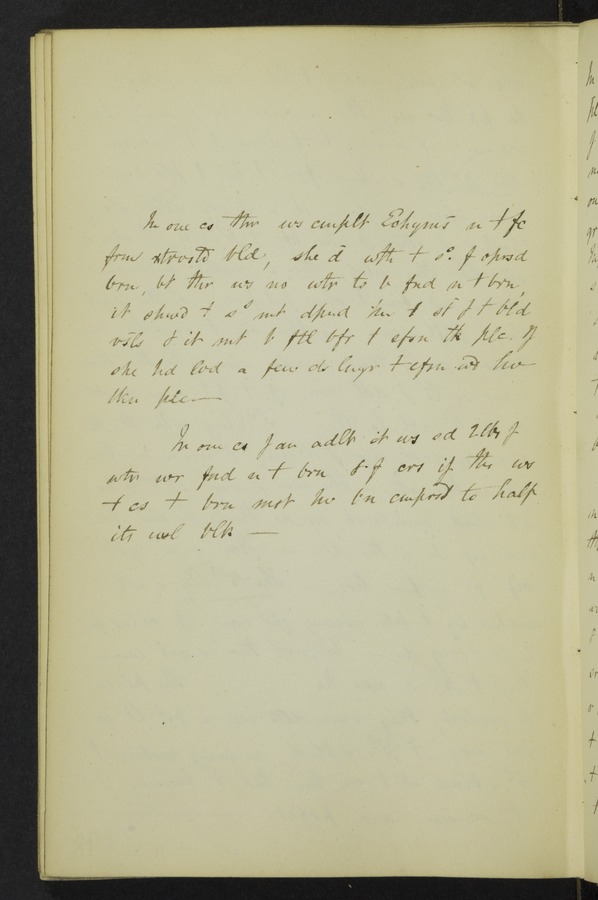 In one cs thr ws cmplt Echyms n + fc
frm xtrvstd bld, she d wth + s°. f oprsd
brn, bt thr ws no wtr to b fnd n + brn,
it shwd + s° mt dpnd
vsls & it mt b ftl bfr + efsn tk plc. If
she hd lvd a few ds lngr + efsn wd hv
tkn plc —
In one cs f an adlt it ws sd 2 lbs f
wtr wr fnd n + brn & f crs if ths ws
+ cs + brn mst hv bn cmprsd to half
its usl blk —